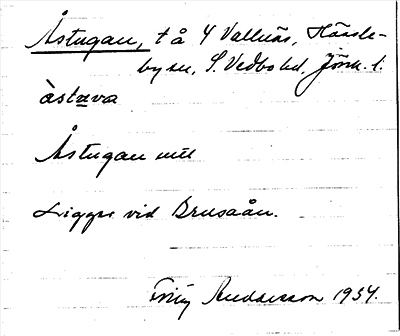 Åstugan, t å 4 Vallnäs, Hässle-
by sn, S. Vedbo hd, Jönk. l.
àstava
Åstugan
Ligger vid Brusaån.
Andersson 1954.